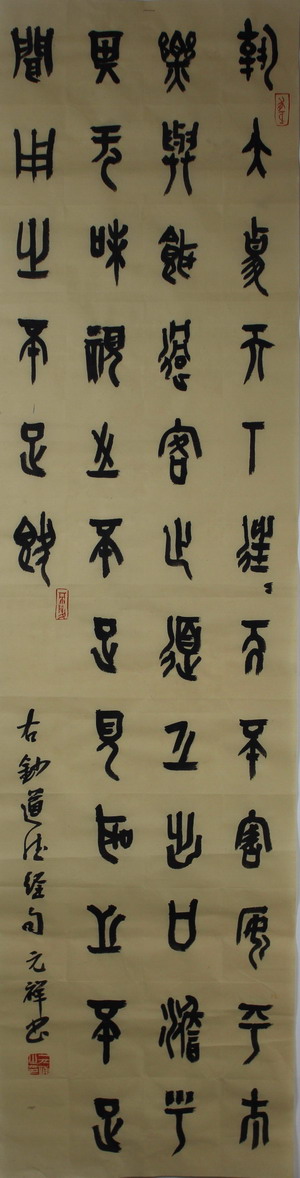 執大象天下往〻而不害安平太
樂與餌過客止道之出口淡乎
其无味視之不足見聽之不足
聞用之不足既
右鈔道德經句 元祥書